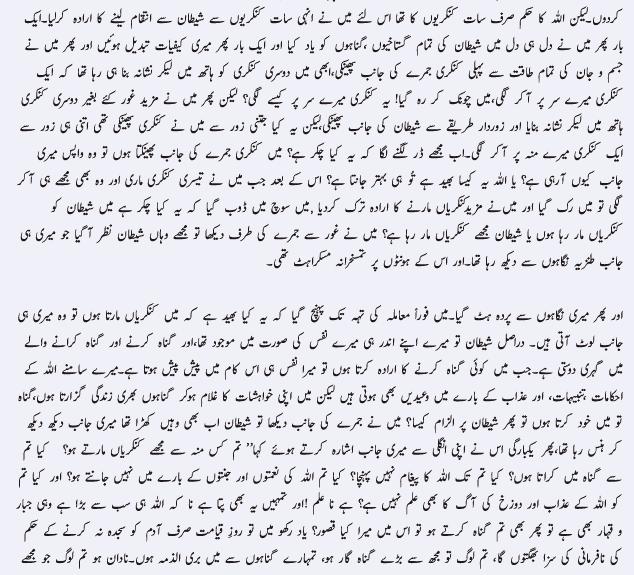 کردوں۔لیکن اللہ کا حکم صرف سات کنکریوں کا تھا اس لئے میں نے انہی سات کنکریوں سے شیطان سے انتقام لینے کا ارادہ کرلیا۔ایک
بار پھر میں نے دل ہی دل میں شیطان کی تمام گستاخیوں ،گناہوں کو یاد کیا اور ایک بار پھر میری کیفیات تبدیل ہوئیں اور پھر میں نے
جسم و جان کی تمام طاقت سے پہلی کنکری جمرے کی جانب پھینکی،ابھی میں دوسری کنکری کو ہاتھ میں لیکر نشانہ بنا ہی رہا تھا کہ ایک
کنکری میرے سر پر آ کر لگی،میں چونک کر رہ گیا! یہ کنکری میرے سر پر کیسے لگی؟ لیکن پھر میں نے مزید غور کئے بغیر دوسری کنکری
ہاتھ میں لیکر نشانہ بنایا اور زوردار طریقے سے شیطان کی جانب پھینکی،لیکن یہ کیا جتنی زور سے میں نے کنکری پھینکی تھی اتنی ہی زور سے
ایک کنکری میرے منہ پر آ کر لگی۔اب مجھے ڈر لگنے لگا کہ یہ کیا چکر ہے؟ میں کنکری جمرے کی جانب پھینکتا ہوں تو وہ واپس میری
جانب کیوں آرہی ہے؟ یا اللہ یہ کیسا بھید ہے تُو ہی بہتر جانتا ہے؟ اس کے بعد جب میں نے تیسری کنکری ماری اور وہ بھی مجھے ہی آ کر
لگی تو میں رک گیا اور میں نے مزیدکنکریاں مارنے کا ارادہ ترک کردیا ،میں سوچ میں ڈوب گیا کہ یہ کیا چکر ہے میں شیطان کو
کنکریاں مار رہا ہوں یا شیطان مجھے کنکریاں مار رہا ہے؟ میں نے غور سے جمرے کی طرف دیکھا تو مجھے وہاں شیطان نظر آ گیا جو میری ہی
جانب طنزیہ نگاہوں سے دیکھ رہا تھا۔اور اس کے ہونٹوں پر تمسخرانہ مسکراہٹ تھی۔
اور پھر میری نگاہوں سے پردہ ہٹ گیا۔میں فوراً معاملہ کی تہہ تک پہنچ گیا کہ یہ کیا بھید ہے کہ میں کنکریاں مارتا ہوں تو وہ میری ہی
جانب لوٹ آتی ہیں۔ دراصل شیطان تو میرے اپنے اندر ہی میرے نفس کی صورت میں موجود تھا،اور گناہ کرنے اور گناہ کرانے والے
میں گہری دوستی ہے۔جب میں کوئی گناہ کرنے کا ارادہ کرتا ہوں تو میرا نفس ہی اس کام میں پیش پیش ہوتا ہے۔میرے سامنے اللہ کے
احکامات ،تنبیہات، اور عذاب کے بارے میں وعیدیں بھی ہوتی ہیں لیکن میں اپنی خواہشات کا غلام ہوکر گناہوں بھری زندگی گزارتا ہوں،گناہ
تو میں خود کرتا ہوں تو پھر شیطان پر الزام کیسا؟ میں نے جمرے کی جانب دیکھا تو شیطان اب بھی وہیں کھڑا تھا میری جانب دیکھ دیکھ
کر ہنس رہا تھا،پھر یکبارگی اس نے اپنی انگلی سے میری جانب اشارہ کرتے ہوئے کہا’’ تم کس منہ سے مجھے کنکریاں مارتے ہو؟ کیا تم
سے گناہ میں کراتا ہوں؟ کیا تم تک اللہ کا پیغام نہیں پہنچا؟ کیا تم اللہ کی نعمتوں اور جنتوں کے بارے میں نہیں جانتے ہو؟ اور کیا تم
کو اللہ کے عذاب اور دوزخ کی آگ کا بھی علم نہیں ہے؟ ہے نا علم !اور تمہیں یہ بھی پتا ہے نا کہ اللہ ہی سب سے بڑا ہے وہی جبار
و قہار بھی ہے تو پھر بھی تم گناہ کرتے ہو تو اس میں میرا کیا قصور؟ یاد رکھو میں تو روزِ قیامت صرف آدم کو سجدہ نہ کرنے کے حکم
کی نافرمانی کی سزا بھگتوں گا، تم لوگ تو مجھ سے بڑے گناہ گار ہو، تمہارے گناہوں سے میں بری الذمہ ہوں۔نادان ہو تم لوگ جو مجھے